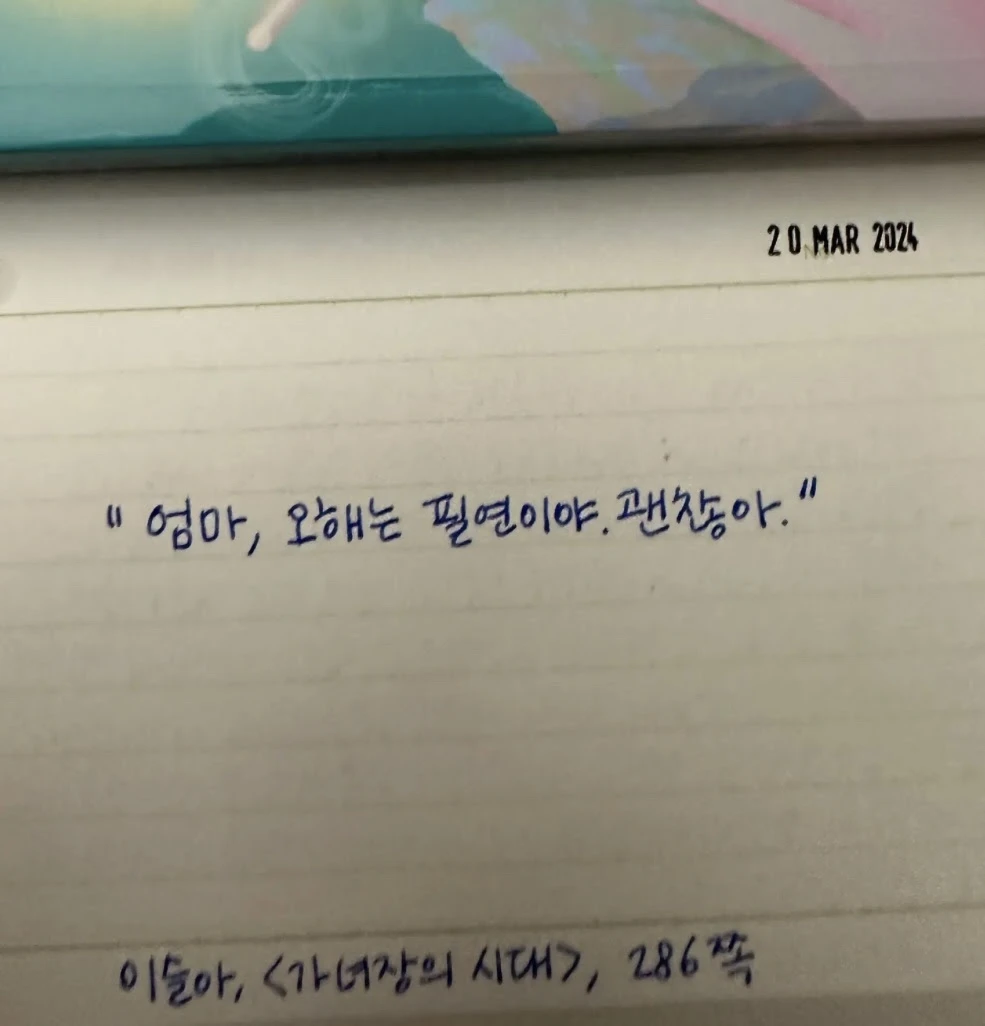 20 MAR 2024
" 엄마, 오해는 필연이야. 괜찮아. "
이슬아, <가녀장의 시대>, 286쪽